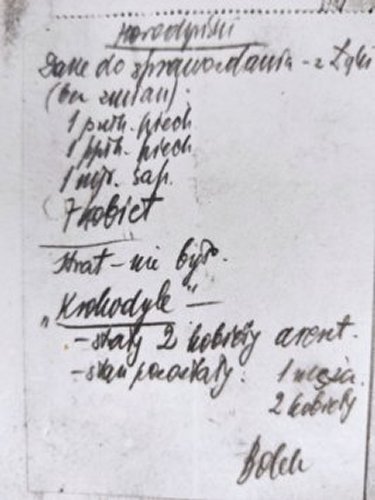 Horodyński
Dane do sprawozdania - z Łyki
(bez zmian).
1 pchr. piech
1 ppor. piech
1 mjr. sap.
7 kobiet
Strat - nie było.
"Krokodyle" -
- straty 2 kobiety areszt.
- stan pozostały: 1 mężcz.
2 kobiety
Bolek